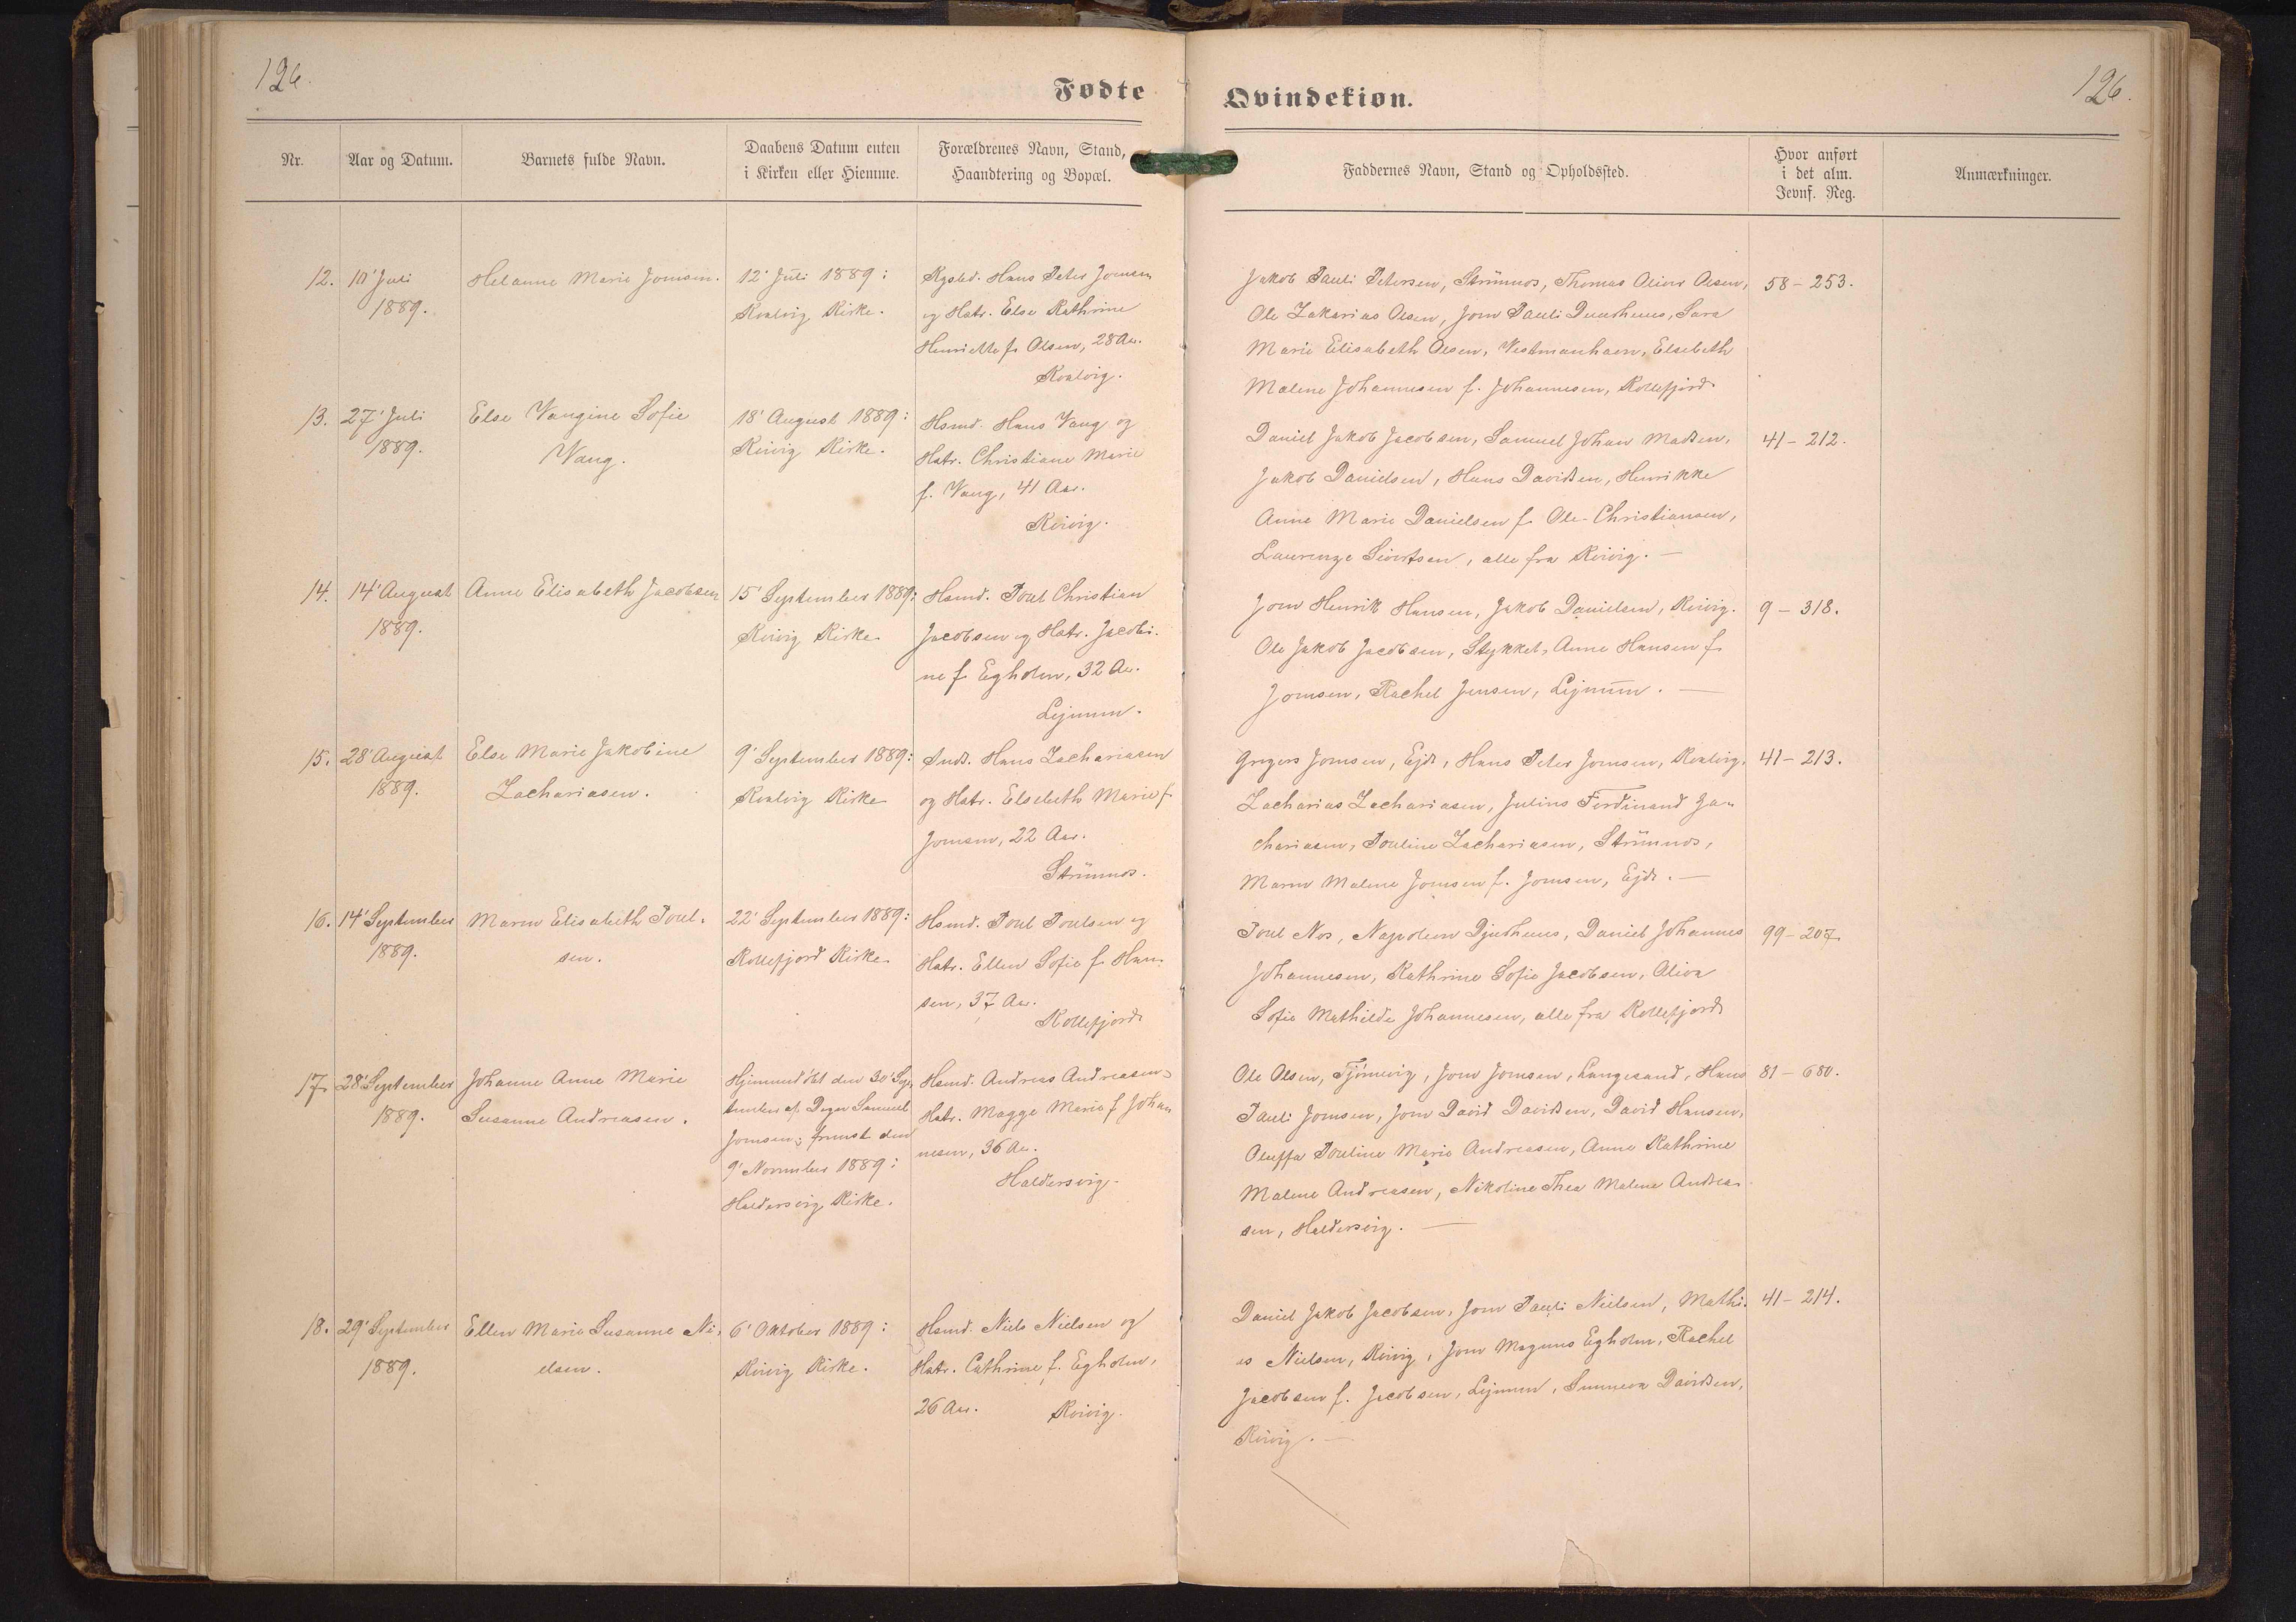 126.
Fødte
Nr.
Aar og Datum.
Barnets fulde Navn.
Daabens Datum enten
i Kirken eller Hiemme.
Forældrenes Navn, Stand,
Haandtering og Bopæl.
12. 10' Juli
1889.
Helanne Marie Joensen.
12' Juli 1889:
Kvalvig Kirke.
Hans Peter Joensen
og Hstr. Else Kathrine
Henriette f. Olsen, 28 Aar.
Kvalvig.
13. 27' Juli
1889.
Else Vangine Sofie
Vang.
18' August 1889:
Kvivig Kirke.
Hsmd. Hans Vang og
Hstr. Christiane Marie
f. Vang, 41 Aar.
Kvivig.
14. 14' August
1889.
Anne Elisabeth Jacobsen
15' September 1889:
Kvivig Kirke
Hsmd. Poul Christian
Jacobsen og Hstr. Jacobi-
ne f. Egholm, 32 Aar.
Lejnum.
15. 28' August
1889.
Else Marie Jakobine
Zachariasen.
9' September 1889:
Kvalvig Kirke
Inds. Hans Zachariasen
og Hstr. Elsebeth Marie f.
Joensen, 22 Aar.
Strümnæs.
16. 14' September
1889.
Maren Elisabeth Poul-
sen.
22' September 1889:
Kollefjord Kirke
Hsmd. Poul Poulsen og
Hstr. Ellen Sofie f. Han-
sen, 37 Aar.
Kollefjord
17. 28' September
1889.
Johanne Anne Marie
Susanne Andreasen.
Hjemmedøbt den 30' Sep-
tember af Degn Samuel
Joensen; fremst. den
9' November 1889:
Haldersvig Kirke.
Hsmd. Andreas Andreasen
Hstr. Magge Marie f. Johan-
nesen, 36 Aar.
Haldersvig.
18. 29' September
1889.
Ellen Marie Susanne Ni-
elsen.
6' Oktober 1889:
Kvivig Kirke.
Hsmd. Niels Nielsen og
Hstr. Cathrine f. Egholm,
26 Aar. Kvivig.
126.
Qvindekiøn.
Faddernes Navn, Stand og Opholdssted.
Hvor anført
i det alm.
Jevnf. Reg.
Anmærkninger.
Jakob Pauli Petersen, Strümnæs, Thomas Oliver Olsen,
Ole Zakarias Olsen, Joen Pauli Sara
Marie Elisabeth Olsen, Vestmanhavn, Elsebeth
Malene Johannesen f. Johannesen, Kollefjord.
58 - 253.
Daniel Jakob Jacobsen, Samuel Johan Madsen,
Jakob Danielsen, Hans Davidsen, Henrikke
Anne Marie Danielsen f. Ole-Christiansen,
Laurenze Sivertsen, alle fra Kvivig. —
41 - 212.
Joen Henrik Hansen, Jakob Danielsen, Kvivig.
Ole Jakob Jacobsen, Stykket, Anne Hansen f.
Joensen, Rachel Jensen, Lejnum. —
9 - 318.
Gregers Joensen, Ejde, Hans Peter Joensen, Kvalvig,
Zacharias Zachariasen, Julius Ferdinand Za-
chariasen, Pouline Zachariasen, Strümnæs,
Maren Malene Joensen f. Joensen, Ejde. —
41 - 213.
Poul Næs, Napoleon Djurhuus, Daniel Johannes
Johannesen, Kathrine Sofie Jacobsen, Oliva
Sofie Mathilde Johannesen, alle fra Kollefjord
99 - 207.
Ole Olsen, Tjörnevig, Joen Joensen, Langesand, Hans
Pauli Joensen, Joen David Davidsen, David Hansen,
Oluffa Pouline Marie Andreasen, Anne Kathrine
Malene Andreasen, Nikoline Thea Malene Andrea-
sen, Haldersvig. —
81 - 680.
Daniel Jakob Jacobsen, Joen Pauli Nielsen, Mathi-
as Nielsen, Kvivig, Joen Magnus Egholm, Rachel
Jacobsen f. Jacobsen, Lejnum, Sunneva Davidsen,
Kvivig. —
41 - 214.